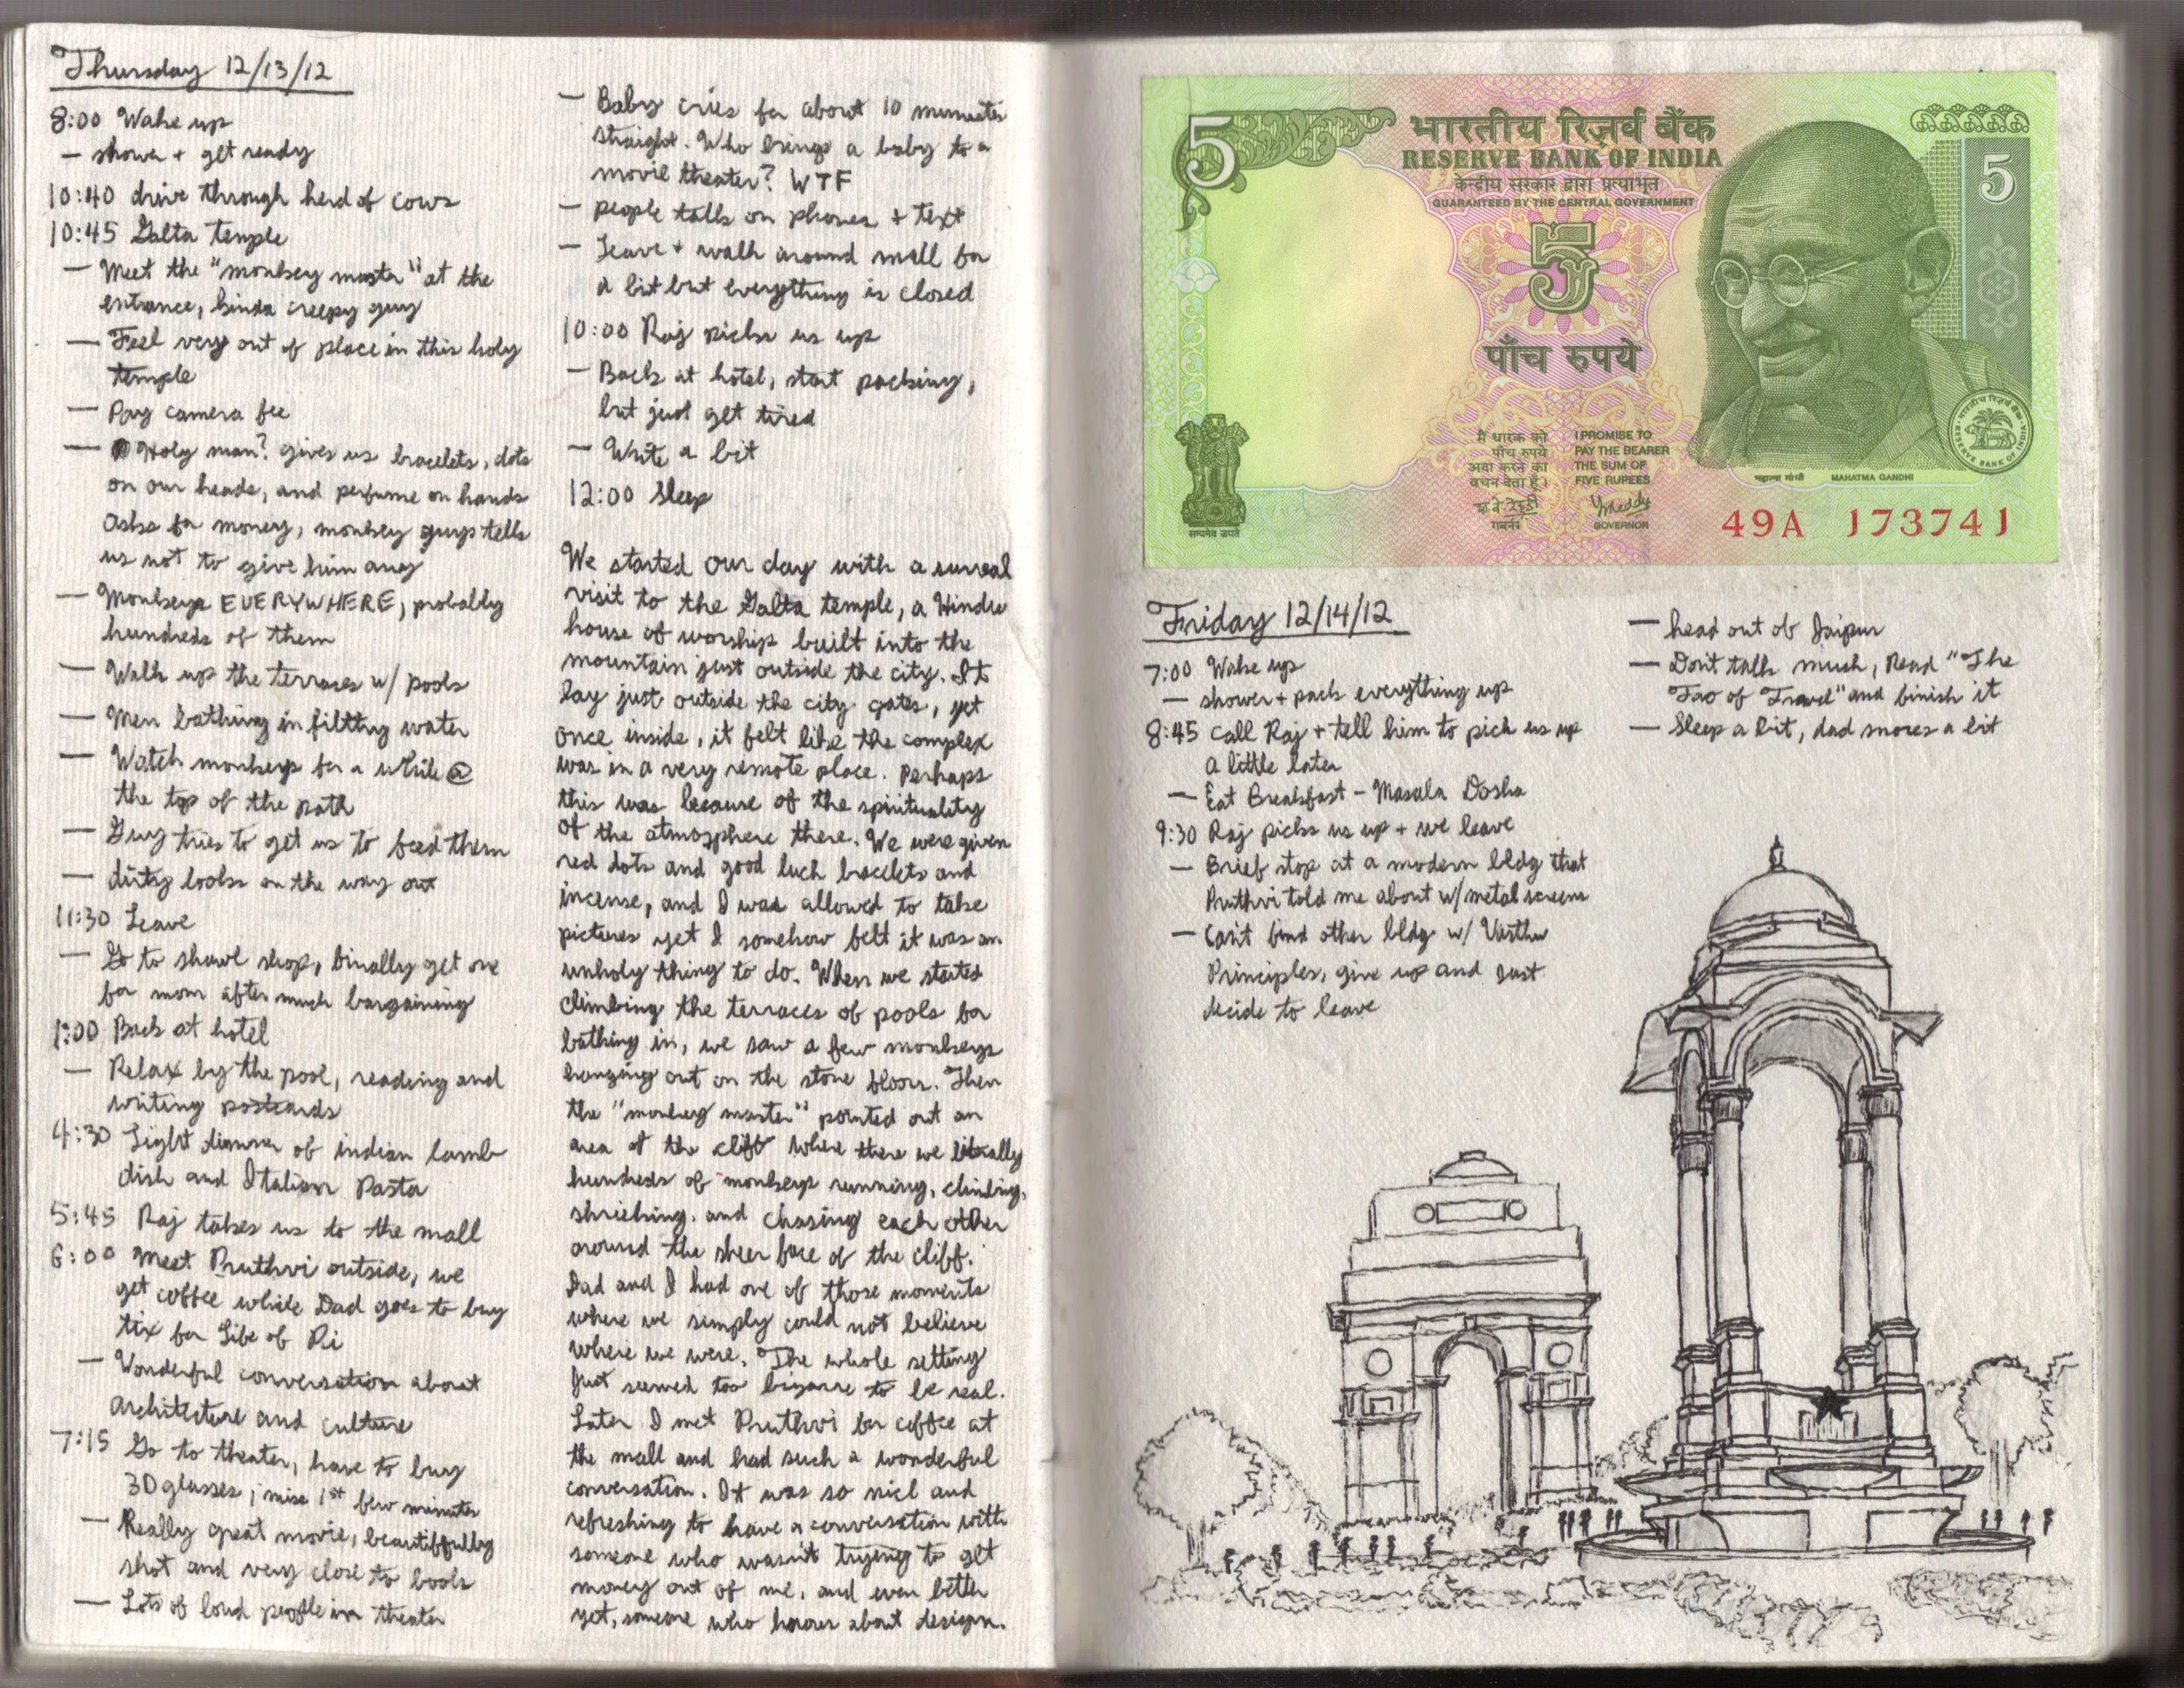 Thursday 12/13/12
8:00 Wake up
— shower + get ready
10:40 drive through herd of cows
10:45 Galta temple
— Meet the "monkey master" at the
entrance, kinda creepy guy
— Feel very out of place in this holy
temple
— Pay camera fee
— Holy man? gives us bracelets, dots
on our heads, and perfume on hands
Asks for money, monkey guys tells
us not to give him any
— Monkeys EVERYWHERE, probably
hundreds of them
— Walk up the terraces w/ pools
— Men bathing in filthy water
— Watch monkeys for a while @
the top of the path
— Guy tries to get us to feed them
— dirty looks on the way out
11:30 Leave
— Go to shawl shop, finally get one
for mom after much bargaining
1:00 Back at hotel
— Relax by the pool, reading and
writing postcards
4:30 Light dinner of indian lamb
dish and Italian Pasta
5:45 Raj takes us to the mall
6:00 Meet Pruthvi outside, we
get coffee while Dad goes to buy
tix for Life of Pi
— Wonderful conversation about
Architecture and culture
7:15 Go to theater, have to buy
3D glasses, miss 1st few minutes
— Really great movie, beautiffully
shot and very close to book
— Lots of loud people in theater
— Baby cries for about 10 minutes
straight. Who brings a baby to a
movie theater? WTF
— people talk on phones + text
— Leave + walk around mall for
a bit but everything is closed
10:00 Raj picks us up
— Back at hotel, start packing,
but just get tired
— Write a bit
12:00 Sleep
We started our day with a surreal
visit to the Galta temple, a Hindu
house of worship built into the
mountain just outside the city. It
lay just outside the city gates, yet
once inside, it felt like the complex
was in a very remote place. Perhaps
this was because of the spirituality
of the atmosphere there. We were given
red dots and good luck bracelets and
incense, and I was allowed to take
pictures yet I somehow felt it was an
unholy thing to do. When we started
climbing the terraces of pools for
bathing in, we saw a few monkeys
hanging out on the stone floors. Then
the "monkey master" pointed out an
area of the cliff where there we literally
hundreds of monkeys running, climbing,
shrieking, and chasing each other
around the sheer face of the cliff.
Dad and I had one of those moments
where we simply could not believe
where we were. The whole setting
just seemed too bizarre to be real.
Later I met Pruthvi for coffee at
the mall and had such a wonderful
conversation. It was so nice and
refreshing to have a conversation with
someone who wasn't trying to get
money out of me, and even better
yet, someone who knows about design.
5
भारतीय रिज़र्व बैंक
RESERVE BANK OF INDIA
केन्द्रीय सरकार द्वारा प्रत्याभूत
GUARANTEED BY THE CENTRAL GOVERNMENT
5
5
पाँच रुपये
मैं धारक को
पाँच रुपये
अदा करने का
वचन देता हूँ।
गवर्नर
I PROMISE TO
PAY THE BEARER
THE SUM OF
FIVE RUPEES
GOVERNOR
महात्मा गांधी MAHATMA GANDHI
भारतीय रिज़र्व बैंक
RESERVE BANK OF INDIA
सत्यमेव जयते
49A 173741
Friday 12/14/12
7:00 Wake up
— shower + pack everything up
8:45 Call Raj + tell him to pick us up
a little later
— Eat Breakfast - Masala Dosha
9:30 Raj picks us up + we leave
— Brief stop at a modern bldg that
Pruthvi told me about w/ metal screens
— Can't find other bldg w/ Vasthu
Principles, give up and just
decide to leave
— head out of Jaipur
— Don't talk much, Read "The
Tao of Travel" and finish it
— Sleep a bit, dad snores a bit